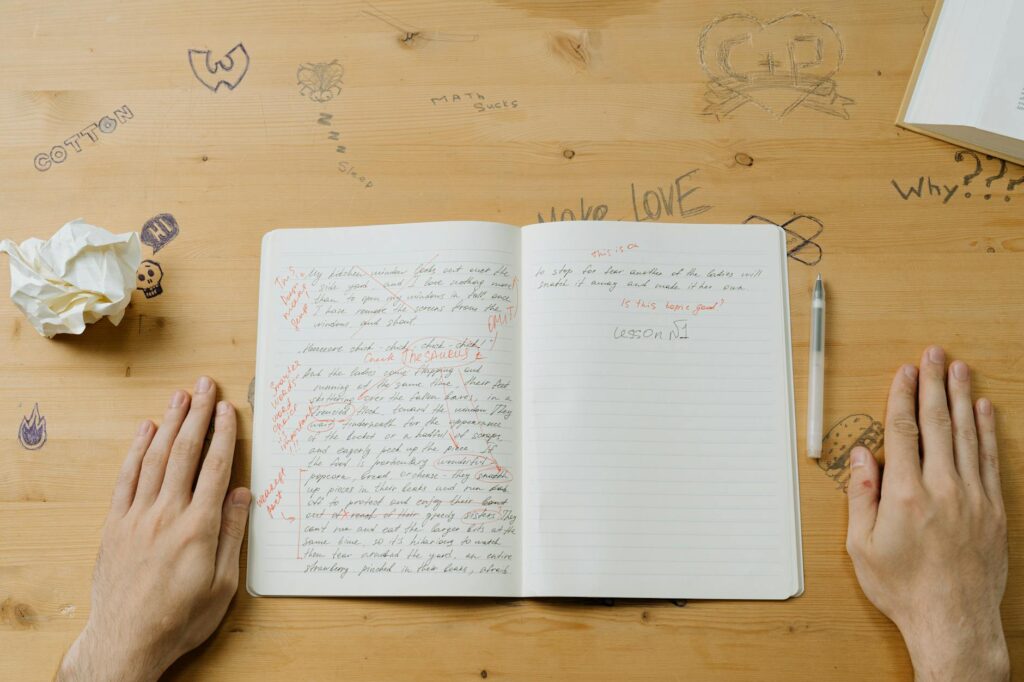 W
COTTON
MATH
SUCKS
ZZZ
Sleep
C+P
Why???
MAKE LOVE
HI
This is a
My kitchen window looks out over the
side yard, and I love nothing more
than to open my windows in fall, once
I have remove the screens from the
windows, and shout.
OMIT!
chick - chick, chick - chick!
Check THESAURUS
And the ladies come flapping and
running at the same time, their feet
skittering over the fallen leaves, in a
flock toward the window. They
wait underneath for the appearance
of the bucket or a handful of scraps
and eagerly peck up the piece. If
the food is particulary wonderful
popcorn, bread, or cheese - they snatch
up pieces in their beaks and run
off to protect and enjoy their
out of reach of their greedy sisters. They
can't run and eat the larger bits at the
same time, so it's hilarious to watch
them tear around the yard, an entire
strawberry pinched in their beaks, afraid
weakest
part
to stop for fear another of the ladies will
snatch it away and make it her own.
Is this topic good?
Lesson №1